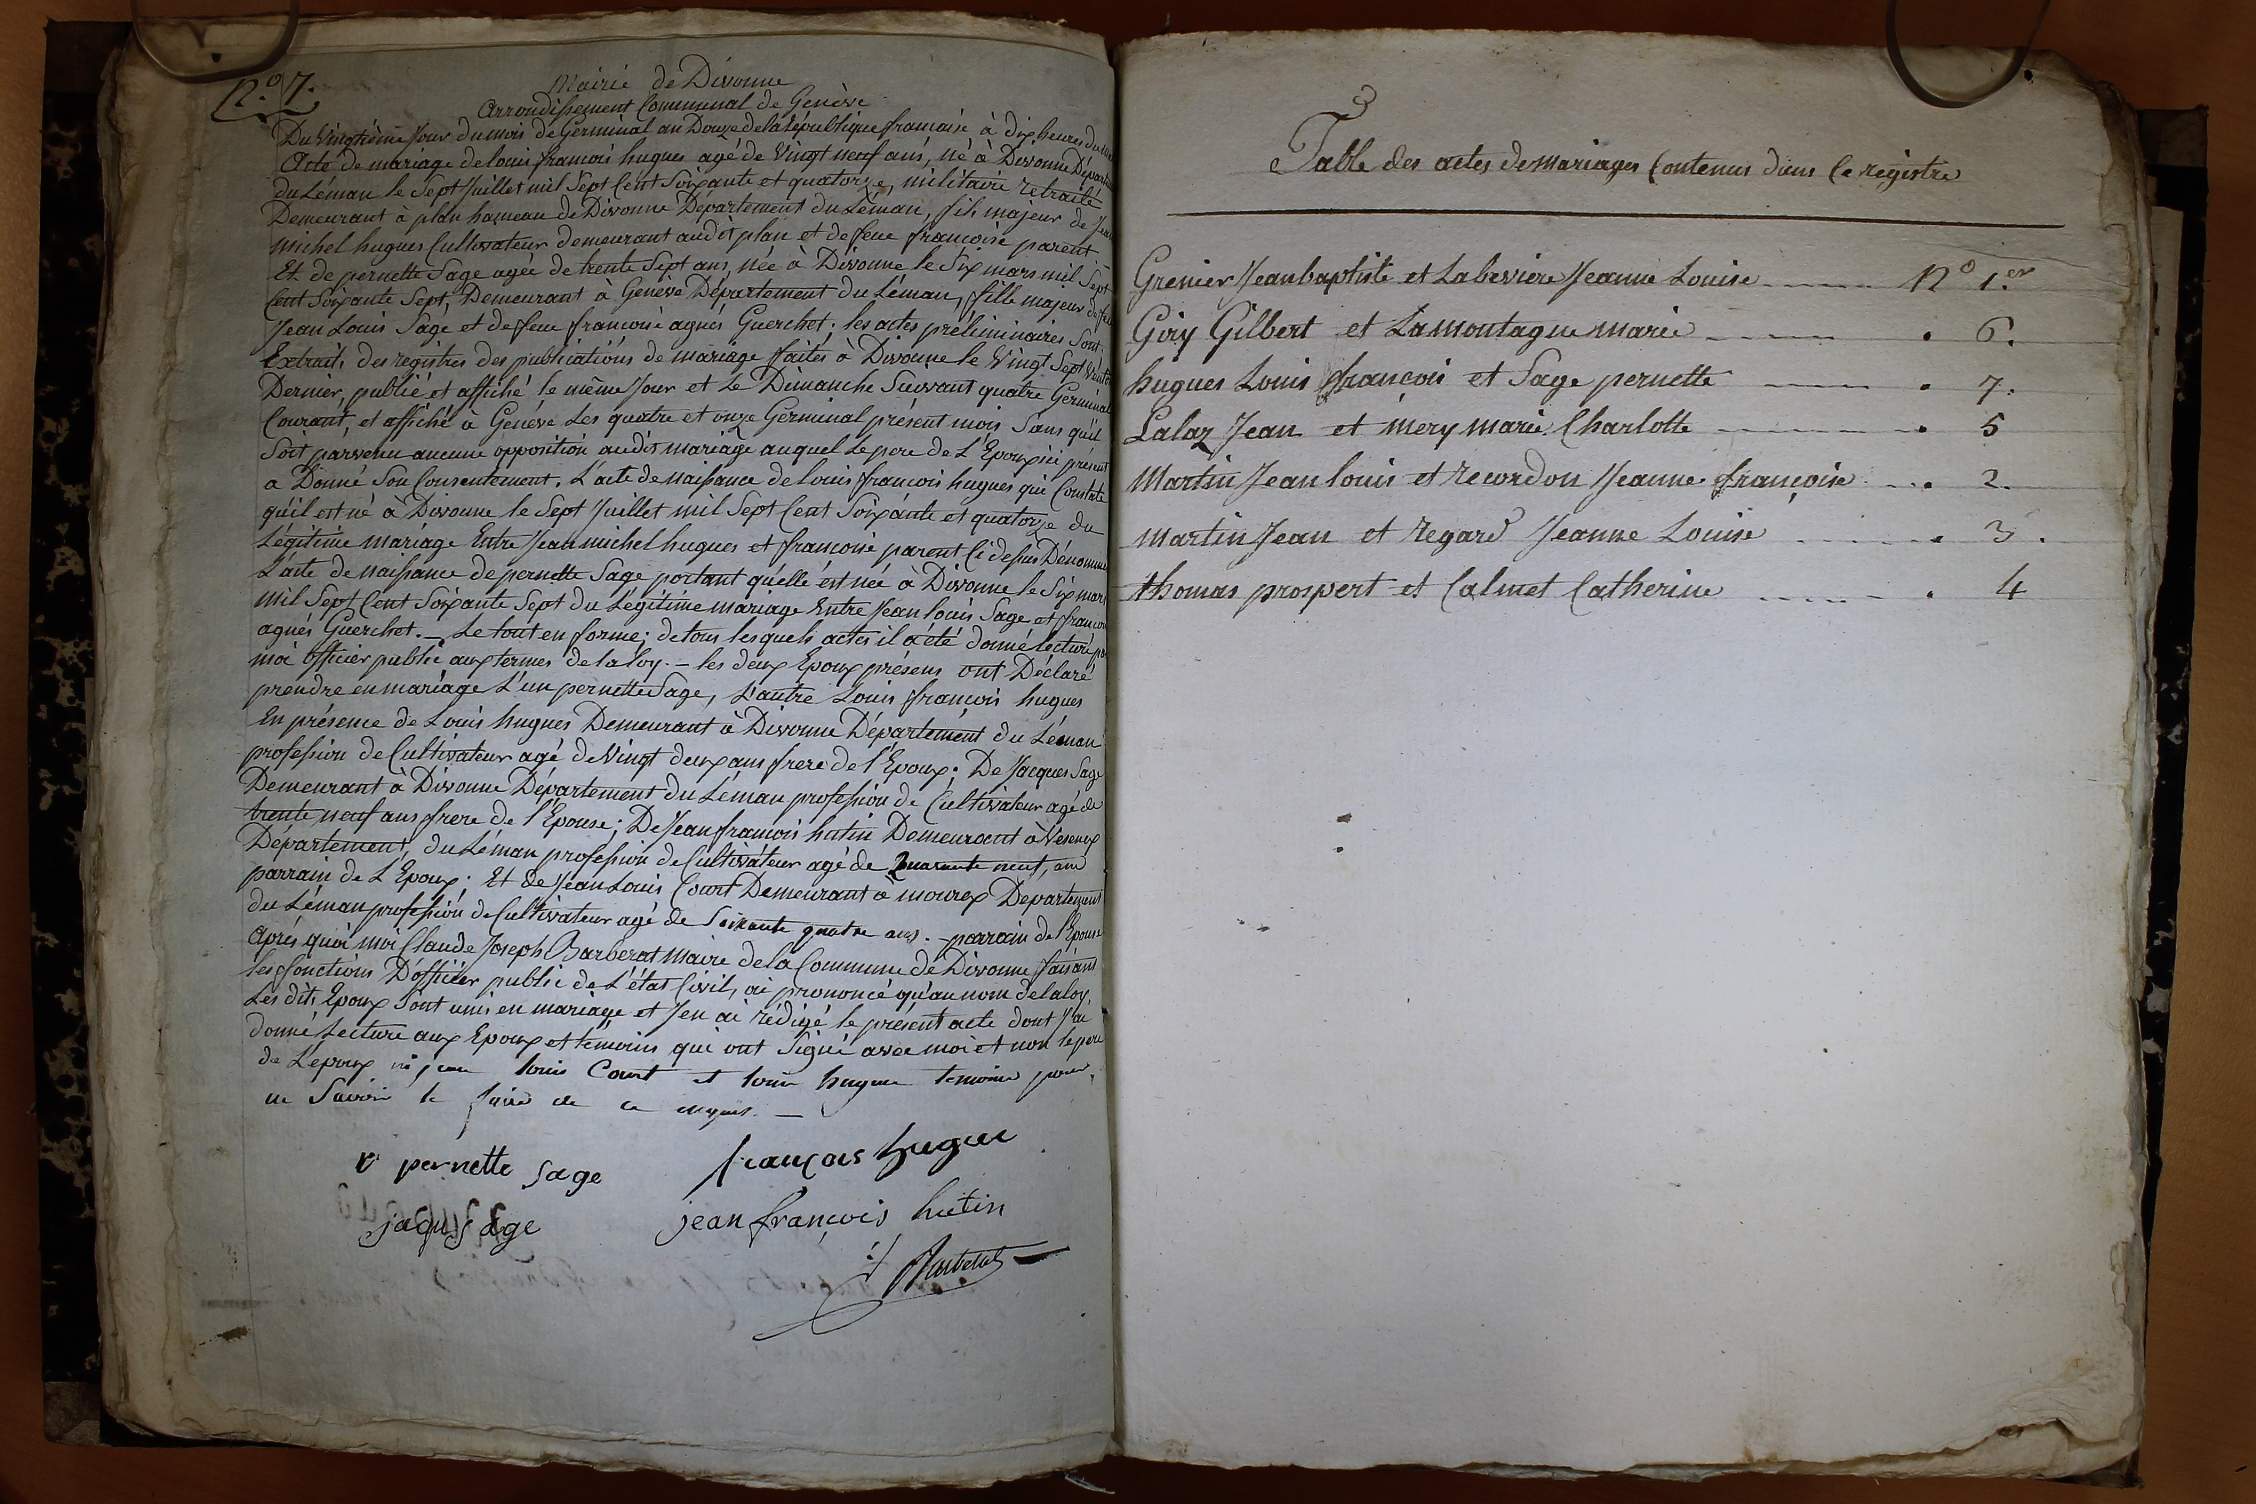 N.o 7.
Mairie de Divonne
Arrondissement Communal de Genève
Du Vingtième Jour du mois de Germinal an Douze de la république francaise à dix heures du
Acte de mariage de louis francois hugues agé de Vingt neuf ans, né à Divonne Départ
du Léman le Sept Juillet mil Sept Cent Soixante et quatorze, militaire retraité
Demeurant à plan hameau de Divonne Département du Léman, fils majeur de Jean
michel hugues Cultivateur demeurant audit plan et de feue francoise parent. —
Et de pernette Sage agée de trente Sept ans, née à Divonne le Six mars mil Sept
Cent Soixante Sept, Demeurant à Genève Département du Léman, fille majeur de feu
Jean Louis Sage et de feue francoise agnés Guerchet; les actes préliminaires Sont
Extraits des registres des publications de mariage faites à Divonne le Vingt Sept Vento
Dernier, publié et affiché le même Jour et Le Dimanche Suivant quatre Germinal
Courant, et affiché à Genève Les quatre et onze Germinal présent mois Sans qu'il
Soit parvenu aucune opposition audit mariage auquel Le pere de L'Epoux ici présent
a Donné Son Consentement. L'acte de naissance de louis francois hugues qui Constate
qu'il est né à Divonne le Sept Juillet mil Sept Cent Soixante et quatorze du
Légitime mariage Entre Jean michel hugues et francoise parent Ci dessus Dénommé
L'acte de naissance de pernette Sage portant qu'elle est née à Divonne le Six mars
mil Sept Cent Soixante Sept du Légitime mariage Entre Jean louis Sage et francoise
agnés Guerchet. — Le tout en forme; de tous lesquels actes il a été donné lecture par
moi officier public aux termes de la loy. — les deux Epoux présens ont Déclaré
prendre en mariage L'un pernette Sage, L'autre Louis françois hugues
En présence de Louis hugues Demeurant à Divonne Département du Léman
profession de Cultivateur agé de Vingt deux ans frere de l'Epoux; De Jacques Sage
Demeurant à Divonne Département du Léman profession de Cultivateur agé de
trente neuf ans frere de l'Epouse; De Jean francois hutin Demeurant à Vesenex
Département du Léman profession de Cultivateur agé de quarante neuf, ans
parrain de L'Epoux; Et de Jean Louis Court Demeurant à mourex Departement
du Léman profession de Cultivateur agé de Soixante quatre ans. — parrain de l'Epouse
Après quoi moi Claude Joseph Barberat maire de la Commune de Divonne faisant
les fonctions D'officier public de L'état Civil, ai prononcé qu'au nom de la loy,
Les dits Epoux Sont unis en mariage et J'en ai rédigé le présent acte dont J'ai
donné Lecture aux Epoux et témoins qui ont Signé avec moi et non le pere
de L'epoux ni jean louis Court et louis hugue temoins pour
ne Savoir le faire de ce enquis. —
pernette sage françois hugue
jaques sage jean françois hutin
Barberat
Table des actes de mariages Contenus dans Ce registre
Grenier Jean baptiste et Labeviere Jeanne Louise N.o 1.er
Giry Gilbert et Lamontagne marie 6.
hugues Louis françois et Sage pernette 7.
Lalaz Jean et mery marie Charlotte 5
Martin Jean louis et recordon Jeanne françoise 2.
martin Jean et regard Jeanne Louise 3.
thomas prospert et Calmet Catherine 4